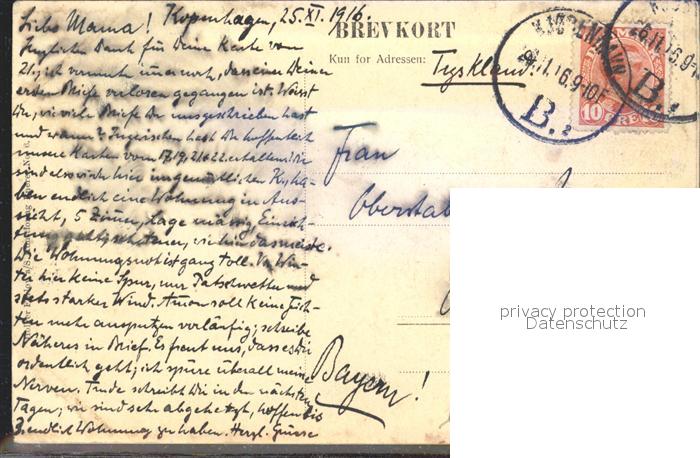 Kopenhagen, 25.XI.1916.
Liebe Mama!
Herzliche Dank für Deine Karte vom
21, ich vermute immer noch, dass einer Deiner
ersten Briefe verloren gegangen ist. Weisst
Du, wieviele Briefe Du uns geschrieben hast
und wann? Inzwischen hast Du hoffentlich
unsere Karten vom 17. 19. 21 & 22. erhalten. Wir
sind also noch hier im gemütlichen
ben endlich eine Wohnung in Aus-
sicht, 5 Zimmer, Lage mässig, Einrich-
tung wie hier das meiste.
Die Wohnungsnot ist ganz toll. Von Win-
ter hier keine Spur, nur Patschwetter und
stets starker Wind. Amon soll keine Fich-
ten mehr ausputzen vorläufig; schreibe
Näheres in Brief. Es freut uns, dass es Dir
ordentlich geht; ich spüre überall meine
Nerven. Trude schreibt Dir in den nächsten
Tagen; wir sind sehr abgehetzt, hoffen bis
3. endlich Wohnung zu haben. Herzl. Grüsse
BREVKORT
Kun for Adressen:
Tyskland.
Frau
Obersta
Bayern!
KJØBENHAVN
B. 2
10 ØRE
B. 2
privacy protection
Datenschutz